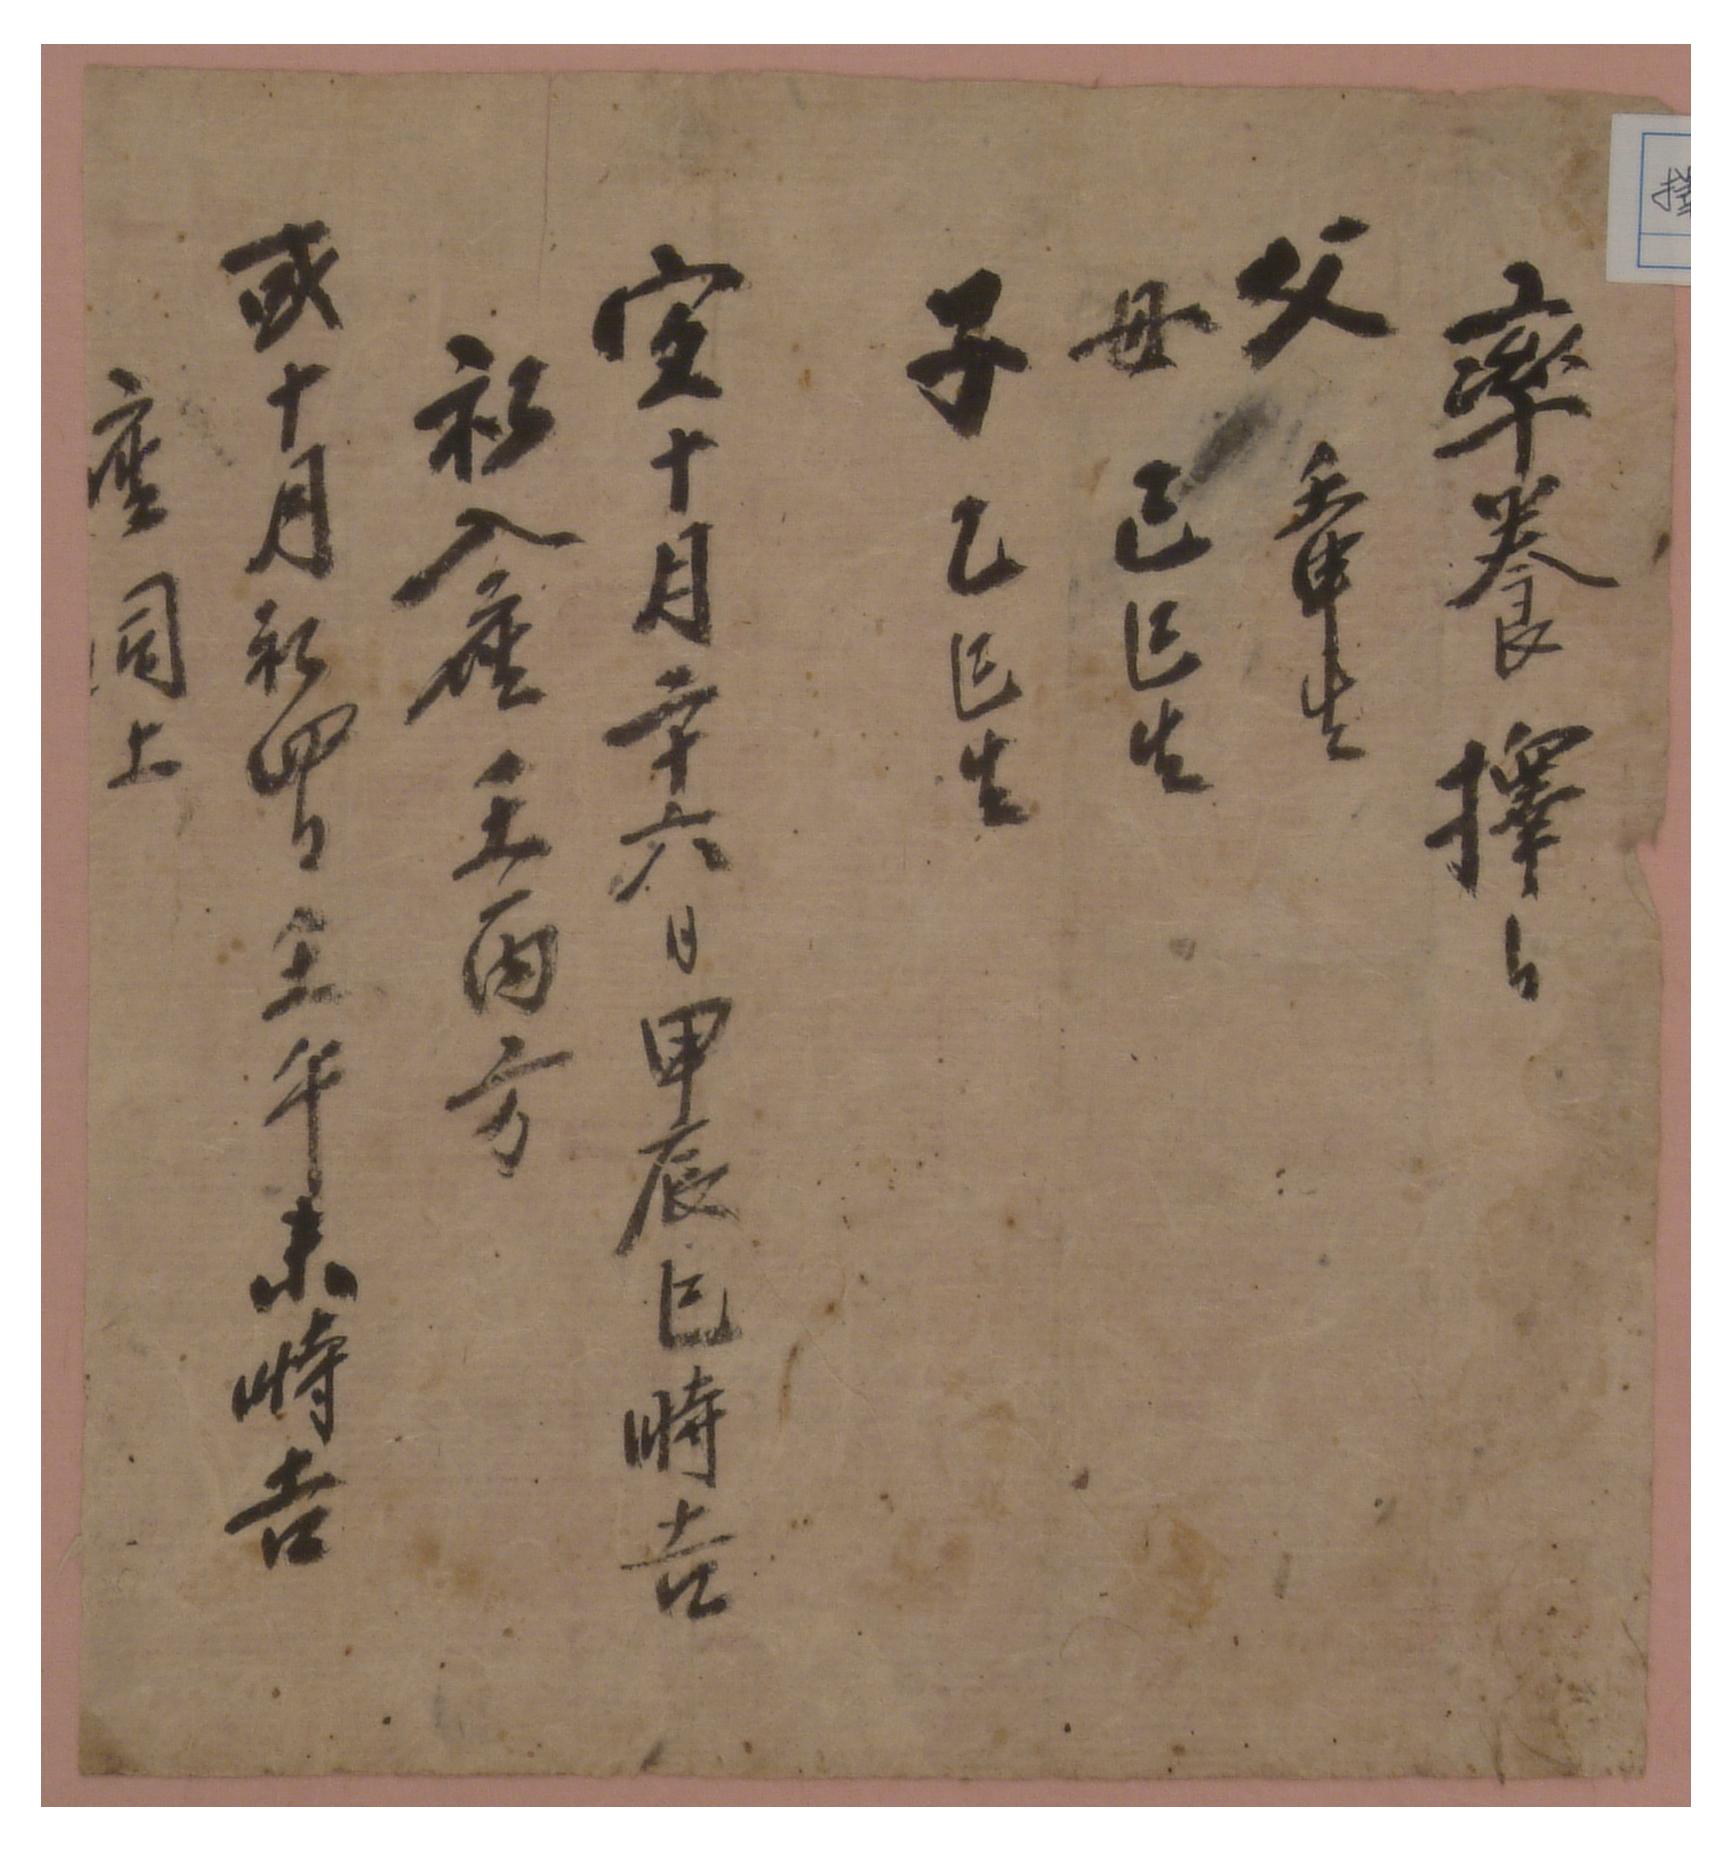 率養擇日
父 壬申生
母 己巳生
子 乙巳生
宜十月二十六日甲辰巳時吉
初入座壬丙方
或十月初四日壬午未時吉
座同上